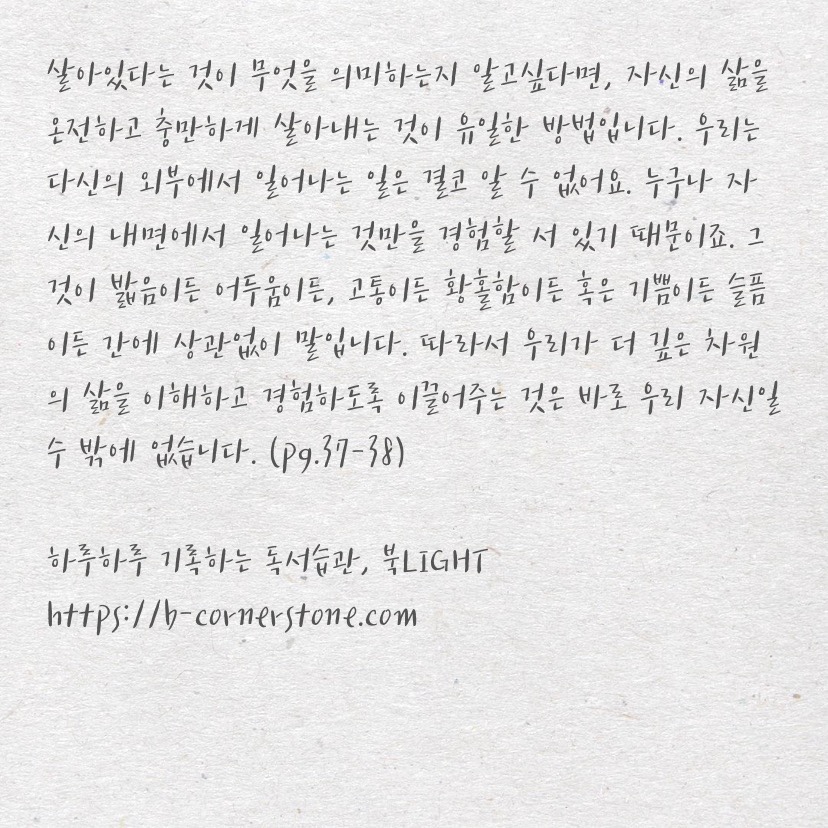 살아있다는 것이 무엇을 의미하는지 알고싶다면, 자신의 삶을
온전하고 충만하게 살아내는 것이 유일한 방법입니다. 우리는
다신의 외부에서 일어나는 일은 결코 알 수 없어요. 누구나 자
신의 내면에서 일어나는 것만을 경험할 서 있기 때문이죠. 그
것이 밟음이든 어두움이든, 고통이든 황홀함이든 혹은 기쁨이든 슬픔
이든 간에 상관없이 말입니다. 따라서 우리가 더 깊은 차원
의 삶을 이해하고 경험하도록 이끌어주는 것은 바로 우리 자신일
수 밖에 없습니다. (pg.37-38)
하루하루 기록하는 독서습관, 북LIGHT
https://b-cornerstone.com